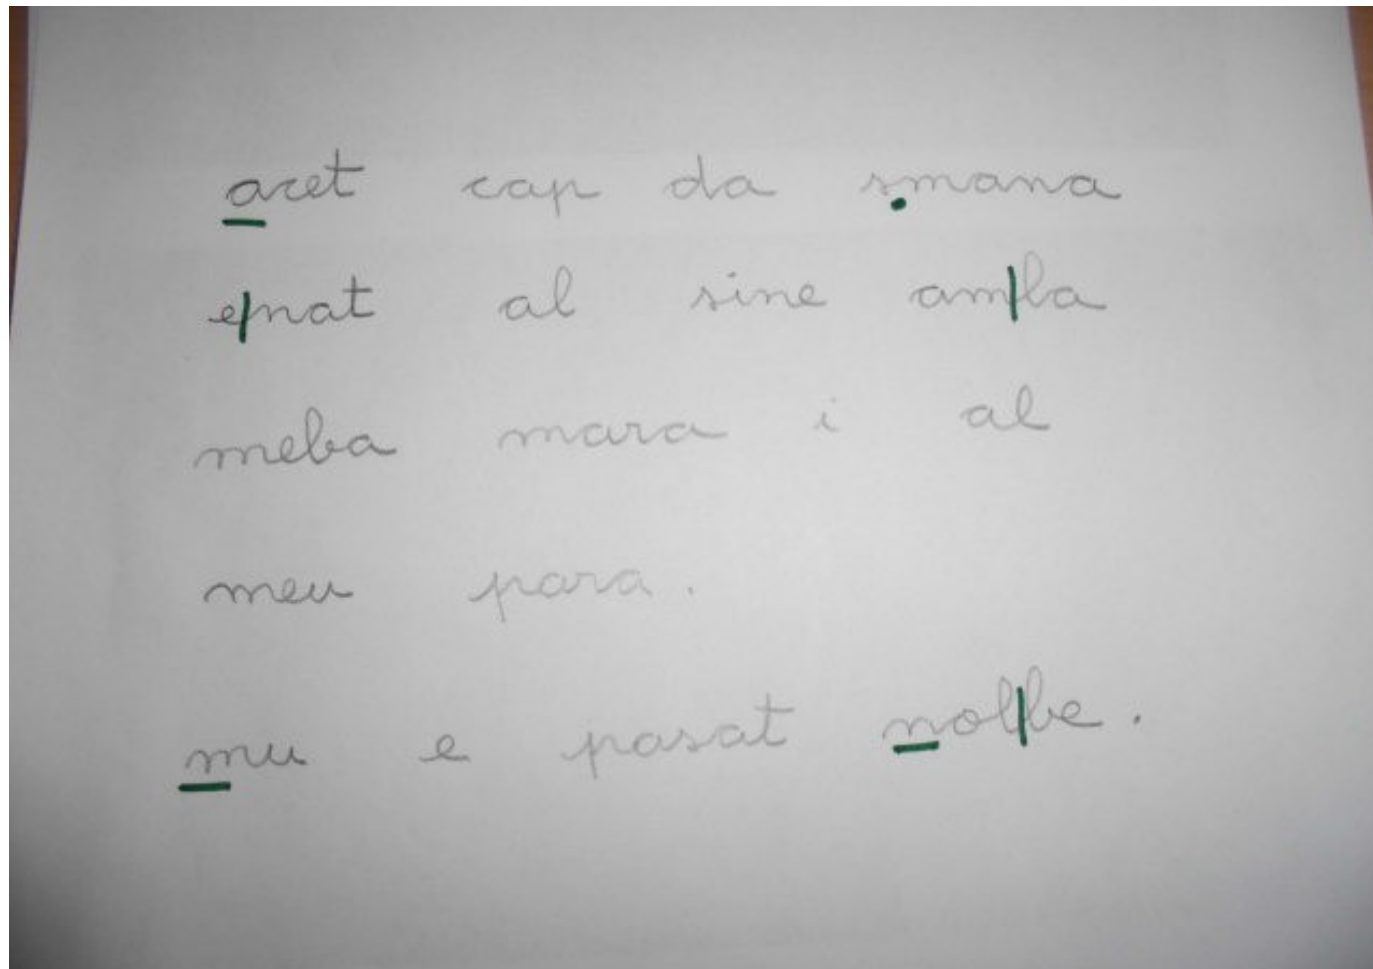 acet cap da smana
enat al sine amla
meba mara i al
meu para.
mu e pasat molbe.